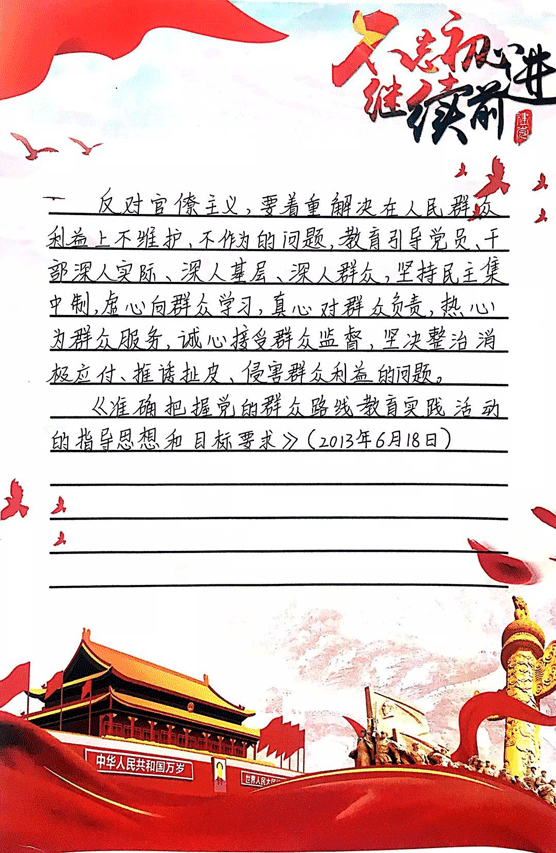 不忘初心
继续前进
反对官僚主义,要着重解决在人民群众
利益上不维护、不作为的问题,教育引导党员、干
部深人实际、深人基层、深人群众,坚持民主集
中制,虚心向群众学习,真心对群众负责,热心
为群众服务,诚心接受群众监督,坚决整治消
极应付、推诿扯皮、侵害群众利益的问题。
《准确把握党的群众路线教育实践活动
的指导思想和目标要求》(2013年6月18日)
中华人民共和国万岁
世界人民大